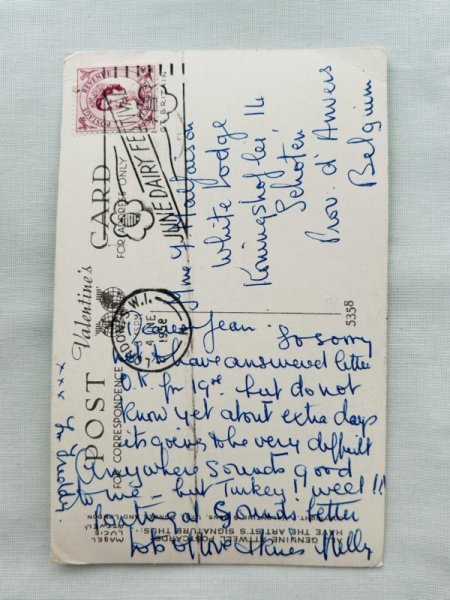 POST CARD
Valentine's
FOR CORRESPONDENCE
FOR ADDRESS ONLY
POSTAGE REVENUE
JUNE DAIRY FESTIVAL
BRITAIN
W.1.
JNE
1958
5358
Mme Y
White Lodge
Koningshoflei, 14
Schoten
Prov. d'Anvers
Belgium
Dear Jean. So sorry
not to have answered letter
OK for 19th. but do not
know yet about extra days
it's going to be very difficult
Anywhere sounds good
to me, but Turkey! well!!
Sounds better
Lots of love & kisses Nelly
xxx
GENUINE ATTWELL POSTCARDS
HAVE THE ARTIST'S SIGNATURE THUS:
MABEL
LUCIE
ATTWELL